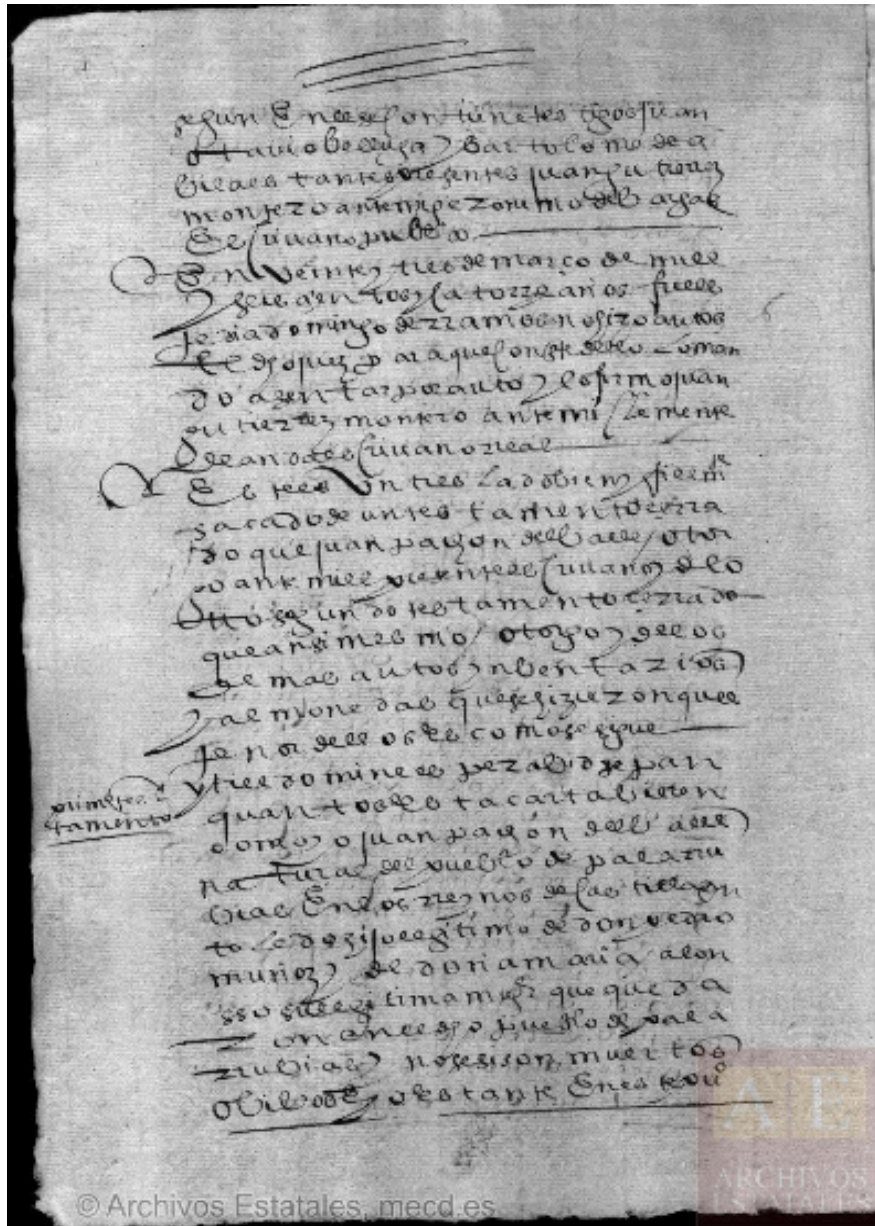 segun en el se contiene testigos juan
otavio belluga y bartolome de a
bila estantes presentes juan gutierrez
montero ante mi geronimo del aguila
escrivano publico
En veinte y tres de março de mill
y seiscientos y catorze años fue es
te dia domingo de rramos no hizo autos
el dho juez y para que conste dello lo man
do asentar por auto y lo firmo juan
gutierrez montero ante mi clemente
escrivano real
Este es un treslado bien y fielmte
sacado de un testamento cerra
do que juan payon del valle otor
go ante mi el presente escrivano y de lo
otro segundo testamento cerrado
que ansimesmo otorgo y de los
demas autos ynbentarios
y almonedas que se hizieron quel
tenor dellos es como se sigue
primer tes
tamento
yn dei domine sepan
quantos esta carta bieren
como yo juan payon del valle
natural del pueblo de palarru
bias en los rreynos de castilla
to ledo hijo legitimo de don pedro
muñoz y de doña maria alon
sso su legitima muger que queda
ron en el dho pueblo de pala
rrubias y no se si son muertos
o bibos y estante en este
© Archivos Estatales, mecd.es
AE
ARCHIVOS
ESTATALES